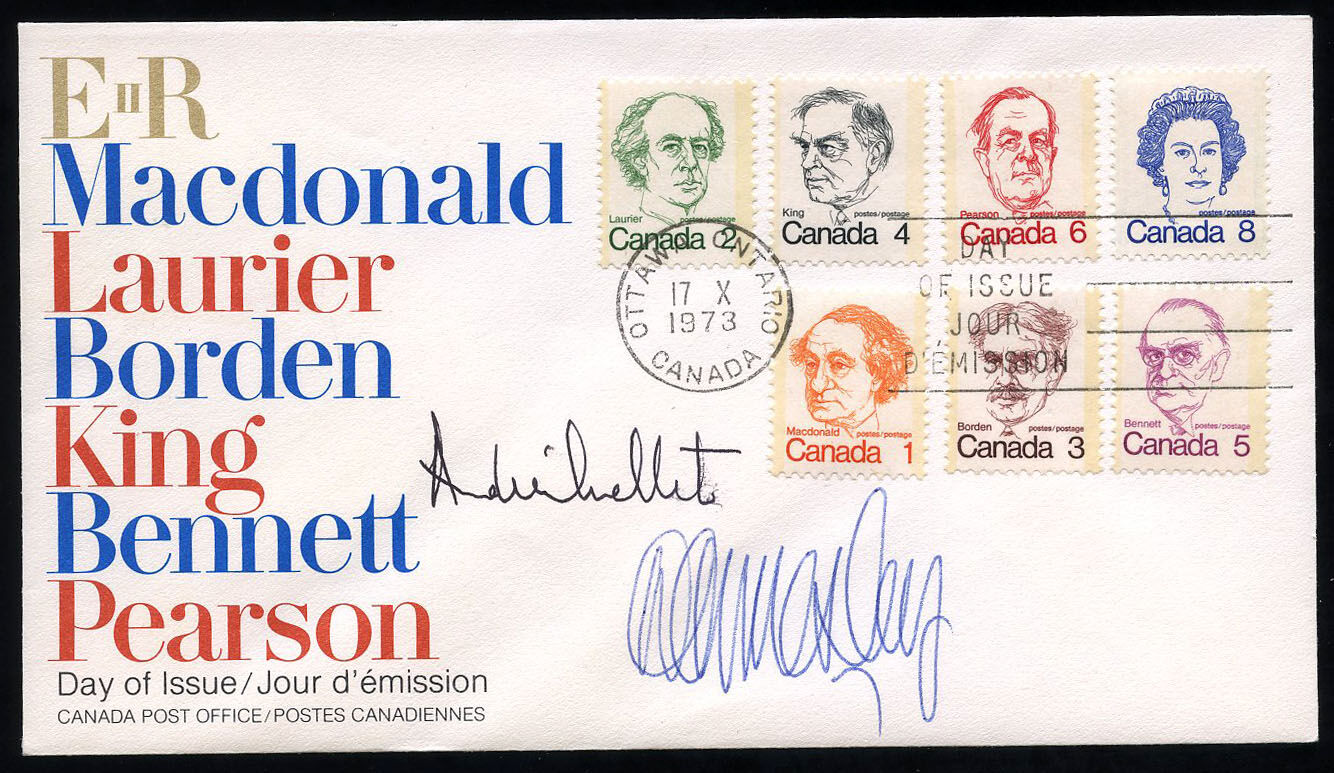 E II R
Macdonald
Laurier
Borden
King
Bennett
Pearson
Day of Issue/Jour d'émission
CANADA POST OFFICE/POSTES CANADIENNES
Laurier postes/postage
Canada 2
King postes/postage
Canada 4
Pearson postes/postage
Canada 6
postes/postage
Canada 8
OTTAWA ONTARIO
17 X
1973
CANADA
DAY
OF ISSUE
JOUR
D'ÉMISSION
Macdonald postes/postage
Canada 1
Borden postes/postage
Canada 3
Bennett postes/postage
Canada 5